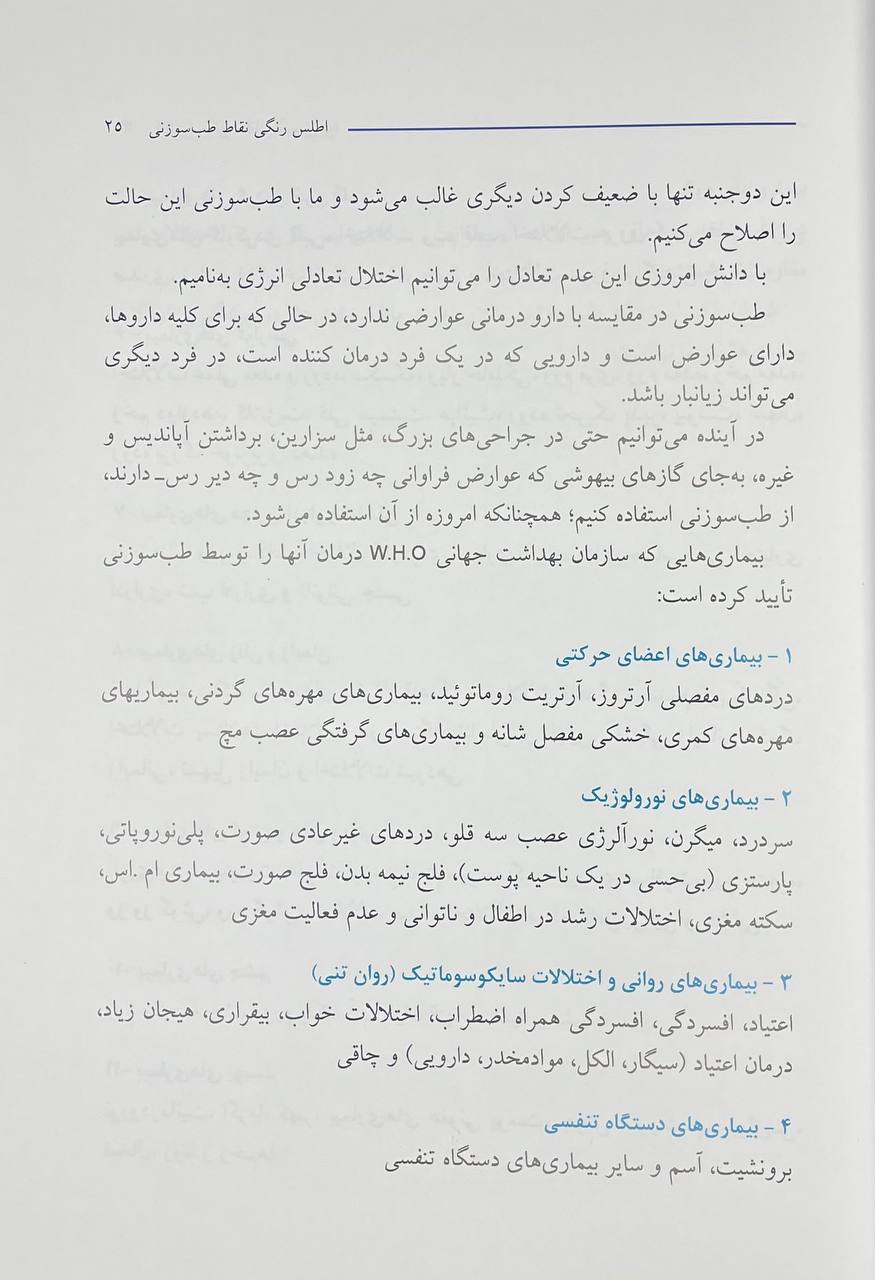 اطلس رنگی نقاط طب‌سوزنی ۲۵
این دوجنبه تنها با ضعیف کردن دیگری غالب می‌شود و ما با طب‌سوزنی این حالت
را اصلاح می‌کنیم.
با دانش امروزی این عدم تعادل را می‌توانیم اختلال تعادلی انرژی به‌نامیم.
طب‌سوزنی در مقایسه با دارو درمانی عوارضی ندارد، در حالی که برای کلیه داروها،
دارای عوارض است و دارویی که در یک فرد درمان کننده است، در فرد دیگری
می‌تواند زیانبار باشد.
در آینده می‌توانیم حتی در جراحی‌های بزرگ، مثل سزارین، برداشتن آپاندیس و
غیره، به‌جای گازهای بیهوشی که عوارض فراوانی چه زود رس و چه دیر رس_ دارند،
از طب‌سوزنی استفاده کنیم؛ همچنانکه امروزه از آن استفاده می‌شود.
بیماری‌هایی که سازمان بهداشت جهانی W.H.O درمان آنها را توسط طب‌سوزنی
تأیید کرده است:
۱ - بیماری‌های اعضای حرکتی
دردهای مفصلی آرتروز، آرتریت روماتوئید، بیماری‌های مهره‌های گردنی، بیماریهای
مهره‌های کمری، خشکی مفصل شانه و بیماری‌های گرفتگی عصب مچ
۲ - بیماری‌های نورولوژیک
سردرد، میگرن، نورآلرژی عصب سه قلو، دردهای غیرعادی صورت، پلی‌نوروپاتی،
پارستزی (بی‌حسی در یک ناحیه پوست)، فلج نیمه بدن، فلج صورت، بیماری ام .اس،
سکته مغزی، اختلالات رشد در اطفال و ناتوانی و عدم فعالیت مغزی
۳ - بیماری‌های روانی و اختلالات سایکوسوماتیک (روان تنی)
اعتیاد، افسردگی، افسردگی همراه اضطراب، اختلالات خواب، بیقراری، هیجان زیاد،
درمان اعتیاد (سیگار، الکل، موادمخدر، دارویی) و چاقی
۴ - بیماری‌های دستگاه تنفسی
برونشیت، آسم و سایر بیماری‌های دستگاه تنفسی